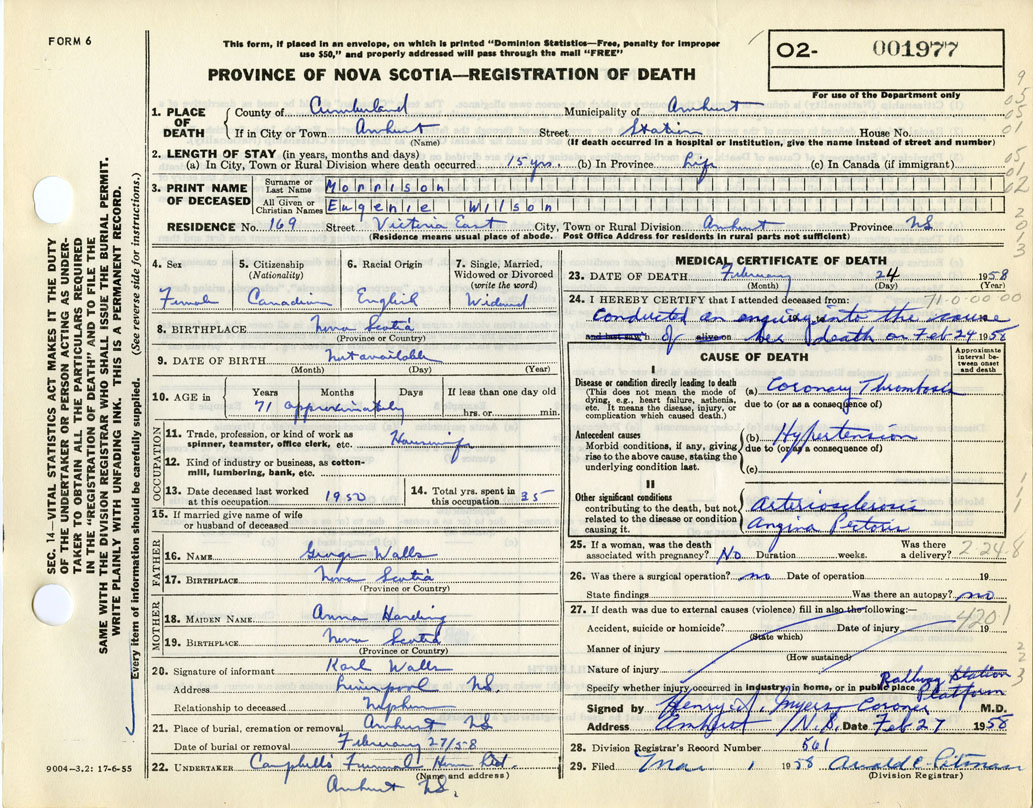 FORM 6
This form, if placed in an envelope, on which is printed "Dominion Statistics—Free, penalty for improper
use $50," and properly addressed will pass through the mail "FREE"
O2- 001977
For use of the Department only
PROVINCE OF NOVA SCOTIA—REGISTRATION OF DEATH
SEC. 14—VITAL STATISTICS ACT MAKES IT THE DUTY
OF THE UNDERTAKER OR PERSON ACTING AS UNDER-
TAKER TO OBTAIN ALL THE PARTICULARS REQUIRED
IN THE "REGISTRATION OF DEATH" AND TO FILE THE
SAME WITH THE DIVISION REGISTRAR WHO SHALL ISSUE THE BURIAL PERMIT.
WRITE PLAINLY WITH UNFADING INK. THIS IS A PERMANENT RECORD.
Every item of information should be carefully supplied. (See reverse side for instructions.)
1. PLACE OF DEATH
County of Cumberland Municipality of Amherst
If in City or Town Amherst Street Station House No.
(Name) (If death occurred in a hospital or institution, give the name instead of street and number)
2. LENGTH OF STAY (in years, months and days)
(a) In City, Town or Rural Division where death occurred 15 yrs. (b) In Province Life (c) In Canada (if immigrant)
3. PRINT NAME OF DECEASED
Surname or Last Name Morrison
All Given or Christian Names Eugenie Wilson
RESIDENCE No. 169 Street Victoria East City, Town or Rural Division Amherst Province NS
(Residence means usual place of abode. Post Office Address for residents in rural parts not sufficient)
4. Sex 5. Citizenship (Nationality) 6. Racial Origin 7. Single, Married, Widowed or Divorced (write the word)
Female Canadian English Widowed
8. BIRTHPLACE Nova Scotia
(Province or Country)
9. DATE OF BIRTH Not available
(Month) (Day) (Year)
10. AGE in Years Months Days If less than one day old
71 approximately hrs. or min.
OCCUPATION
11. Trade, profession, or kind of work as spinner, teamster, office clerk, etc. Housewife
12. Kind of industry or business, as cotton-mill, lumbering, bank, etc.
13. Date deceased last worked at this occupation 1950 14. Total yrs. spent in this occupation 35
15. If married give name of wife or husband of deceased
FATHER
16. NAME George Walls
17. BIRTHPLACE Nova Scotia
(Province or Country)
MOTHER
18. MAIDEN NAME Anna Harding
19. BIRTHPLACE Nova Scotia
(Province or Country)
20. Signature of informant Karl Walls
Address Liverpool NS.
Relationship to deceased Nephew
21. Place of burial, cremation or removal Amherst NS
Date of burial or removal February 27/58
22. UNDERTAKER Campbell's Funeral Home Ltd.
(Name and address)
Amherst NS.
9004-3.2: 17-6-55
MEDICAL CERTIFICATE OF DEATH
23. DATE OF DEATH February 24 1958
(Month) (Day) (Year)
24. I HEREBY CERTIFY that I attended deceased from: 71-0-00-00
Conducted an enquiry into the cause
of her death on Feb 24 1958
CAUSE OF DEATH
Approximate interval between onset and death
I
Disease or condition directly leading to death
(This does not mean the mode of dying, e.g., heart failure, asthenia, etc. It means the disease, injury, or complication which caused death.)
(a) Coronary Thrombosis
due to (or as a consequence of)
Antecedent causes
Morbid conditions, if any, giving rise to the above cause, stating the underlying condition last.
(b) Hypertension
due to (or as a consequence of)
(c)
II
Other significant conditions
contributing to the death, but not related to the disease or condition causing it.
Arteriosclerosis
Angina Pectoris
25. If a woman, was the death associated with pregnancy? No Duration weeks. Was there a delivery? 2248
26. Was there a surgical operation? no Date of operation 19
State findings Was there an autopsy? no
27. If death was due to external causes (violence) fill in also the following:—
4201
Accident, suicide or homicide? Date of injury 19
(State which)
Manner of injury
(How sustained)
Nature of injury
Railway Station
Specify whether injury occurred in industry, in home, or in public place Platform
Signed by Henry A. Myers Coroner M.D.
Address Amherst N.S. Date Feb 27 1958
28. Division Registrar's Record Number 561
29. Filed Mar 1 1958 Arnold C. Pitman
(Division Registrar)